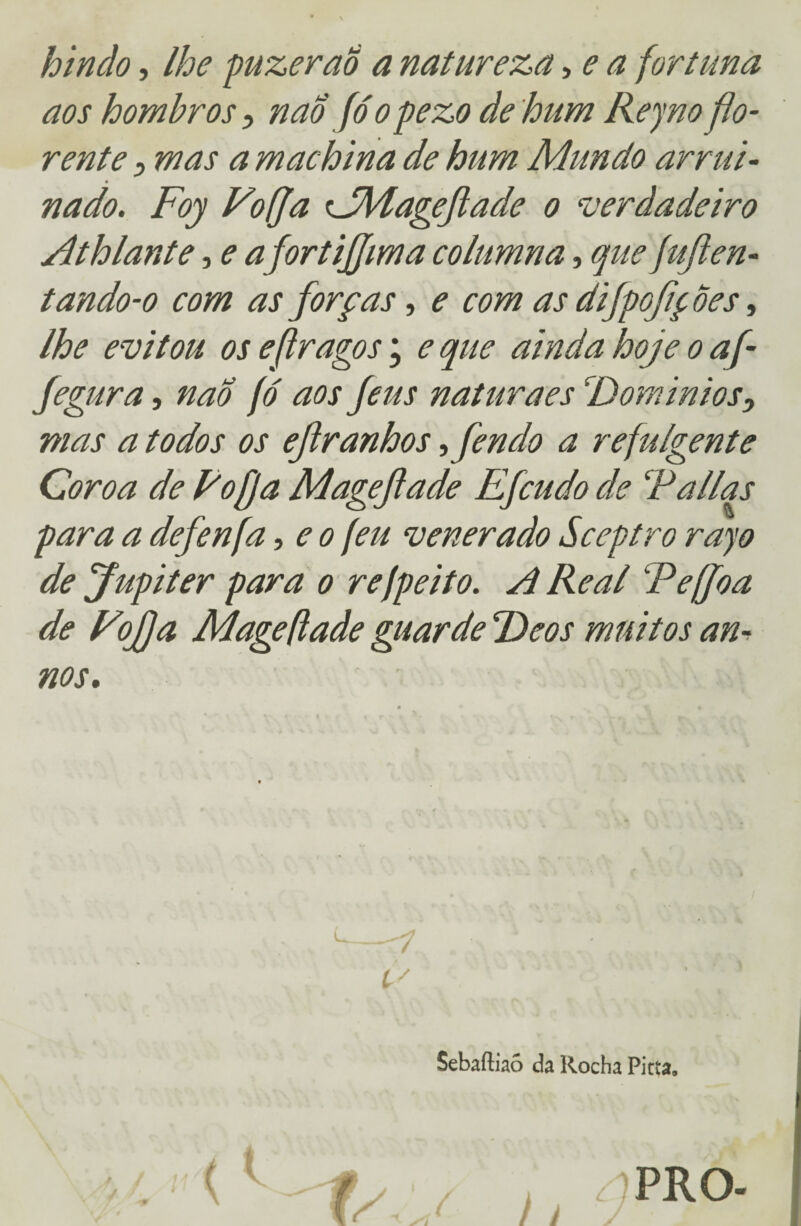 hindo, lhe puzeraõ a natureza, e a fortuna
aos hombros, naõ ſó o pezo de hum Reyno flo-
rente, mas a machina de hum Mundo arrui-
nado. Foy Voſſa Mageſtade o verdadeiro
Athlante, e a fortiſſima columna, que ſuſten-
tando-o com as forças, e com as diſpoſições,
lhe evitou os eſtragos; e que ainda hoje o aſ-
ſegura, naõ ſó aos ſeus naturaes Dominios,
mas a todos os eſtranhos, ſendo a refulgente
Coroa de Voſſa Mageſtade Eſcudo de Pallas
para a defenſa, e o ſeu venerado Sceptro rayo
de Jupiter para o reſpeito. A Real Peſſoa
de Voſſa Mageſtade guarde Deos muitos an-
nos.
Sebaſtiaõ da Rocha Pitta.
PRO-